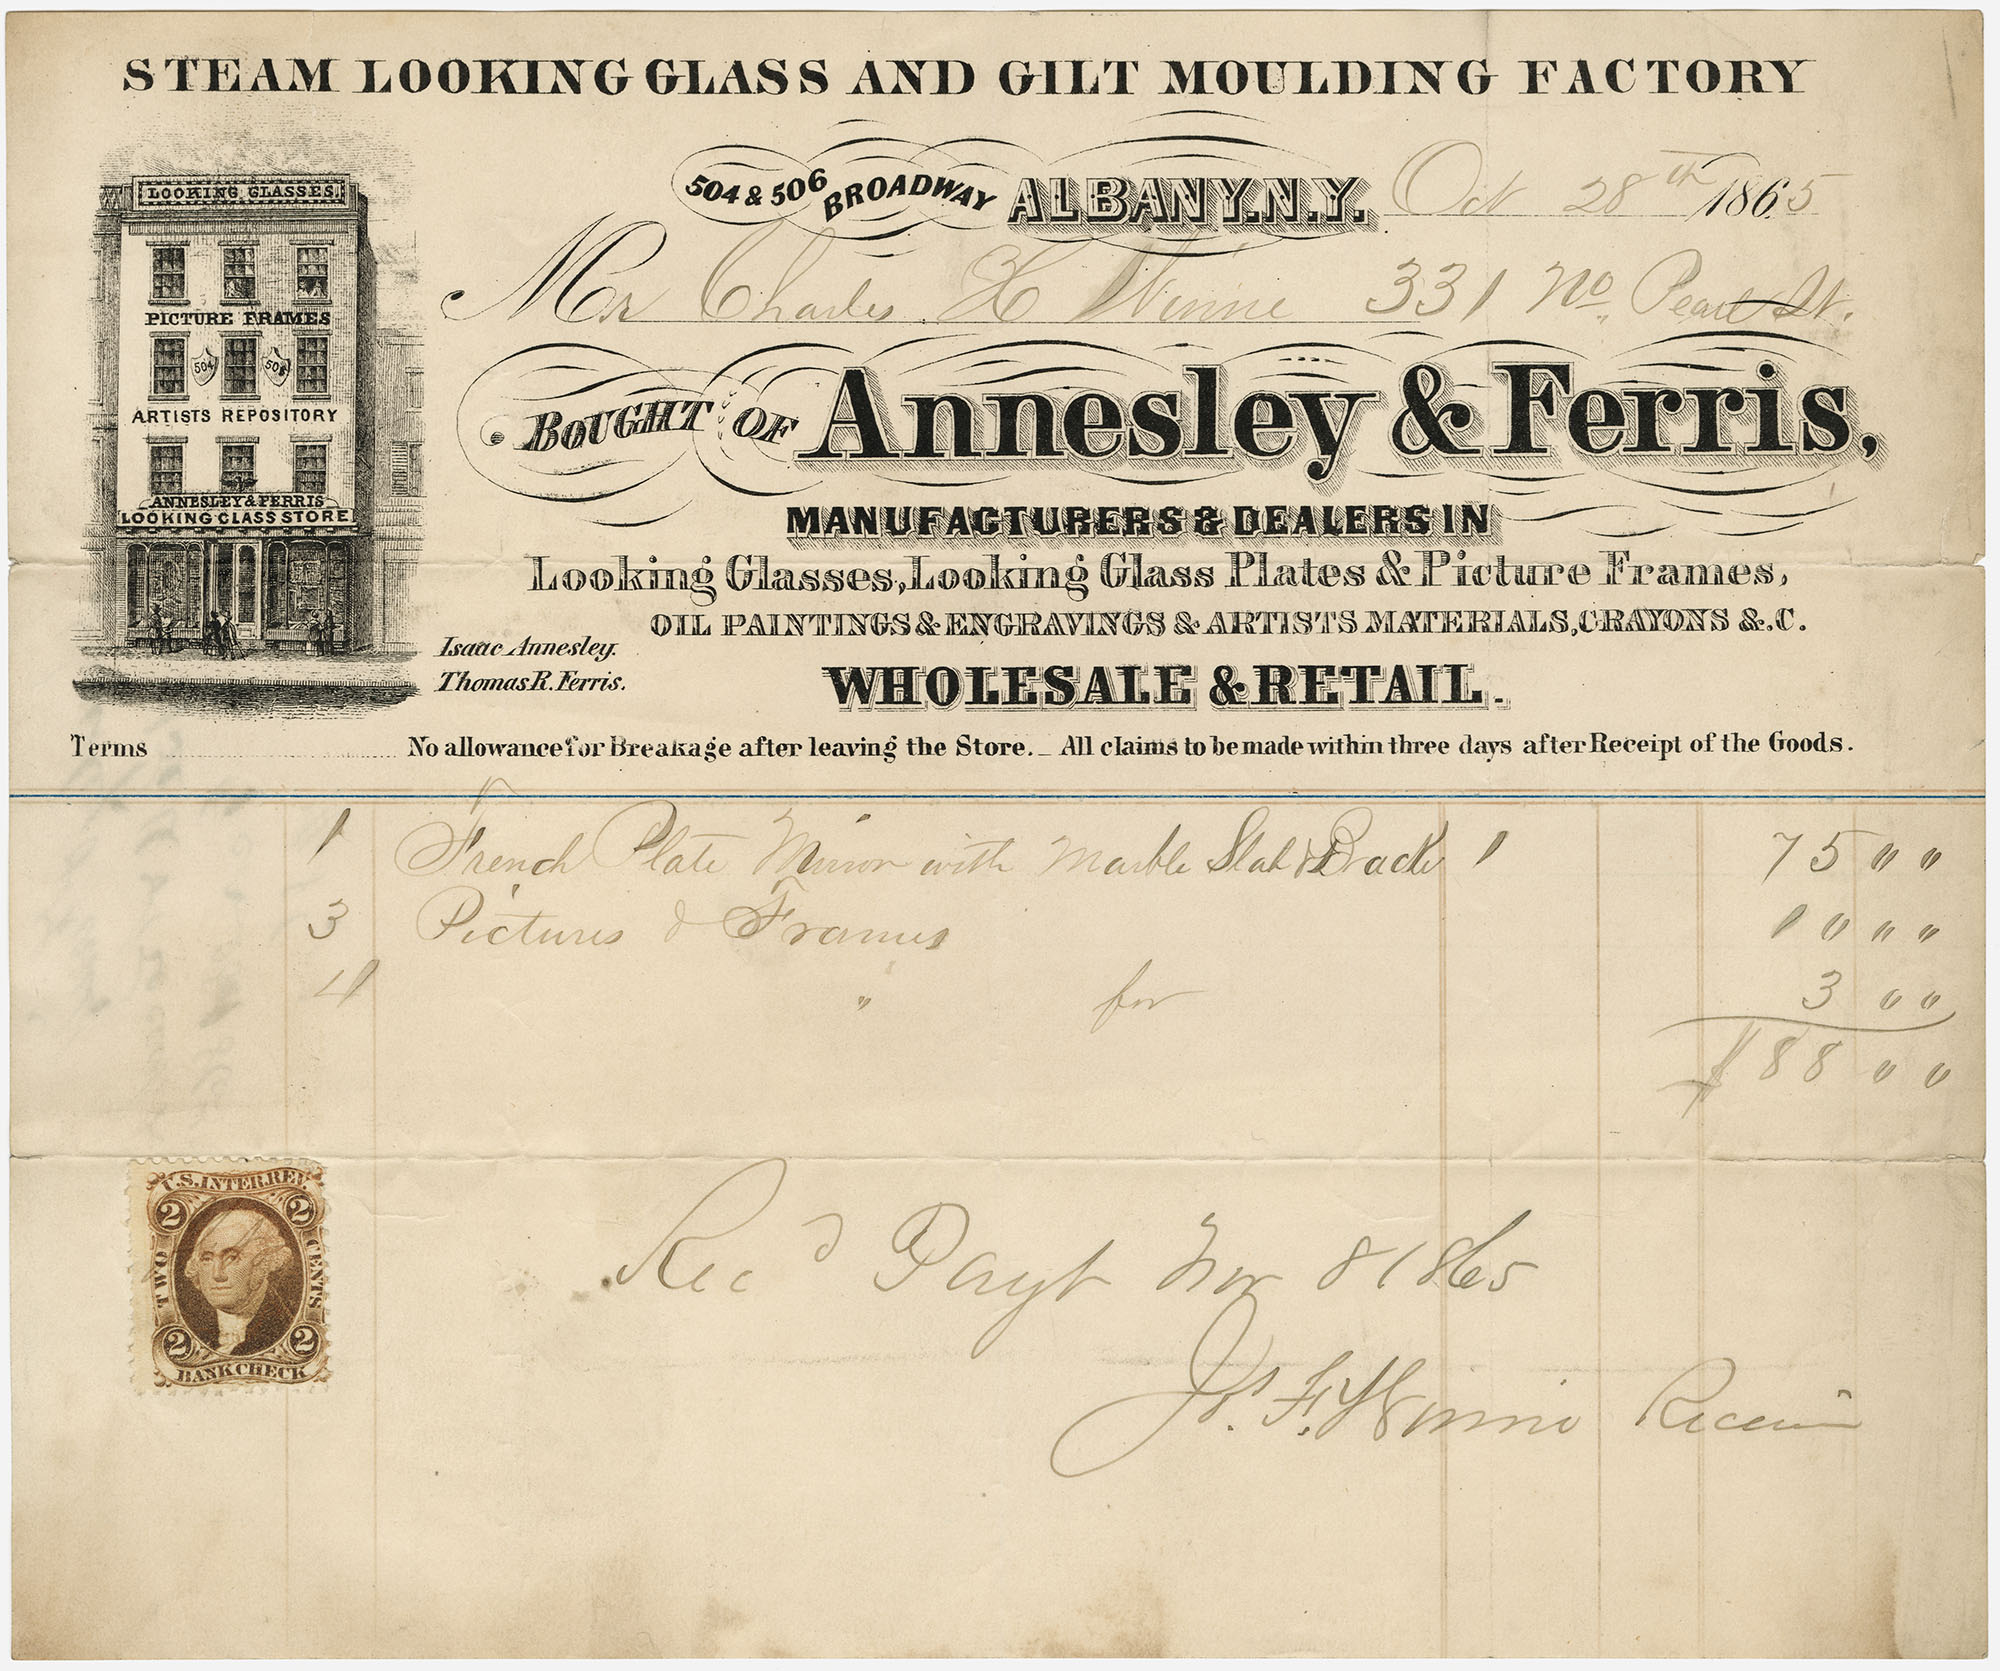 STEAM LOOKING GLASS AND GILT MOULDING FACTORY
504 & 506 BROADWAY ALBANY. N.Y. Oct 28th 1865
Mr Charles H Winne 331 No. Pearl St.
BOUGHT OF Annesley & Ferris,
MANUFACTURERS & DEALERS IN
Looking Glasses, Looking Glass Plates & Picture Frames,
OIL PAINTINGS & ENGRAVINGS & ARTISTS MATERIALS, CRAYONS &.C.
WHOLESALE & RETAIL.
LOOKING GLASSES
PICTURE FRAMES
504 506
ARTISTS REPOSITORY
ANNESLEY & FERRIS
LOOKING GLASS STORE
Isaac Annesley.
Thomas R. Ferris.
Terms No allowance for Breakage after leaving the Store. _ All claims to be made within three days after Receipt of the Goods.
1 French Plate Mirror with Marble Slab & 75 " "
3 Pictures & Frames 10 " "
4 " for 3 00
$88 00
U.S. INTER. REV.
2 2
TWO CENTS
2 2
BANK CHECK
Rec'd Payt Nov 8 1865
F. Winne